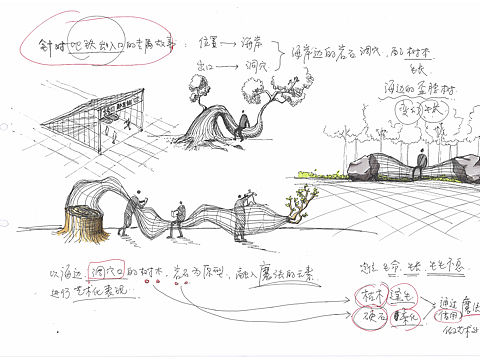 针对地铁出入口的专属故事：
位置 → 海岸
出口 → 洞穴
海岸边的岩石洞穴，配树木
生长
海边的歪脖树
变幻生长
以海边洞穴口的树木，岩石为原型，融入魔法的元素
进行艺术化表现
生命，生长，生生不息
枯木逢生
硬石
通过魔法